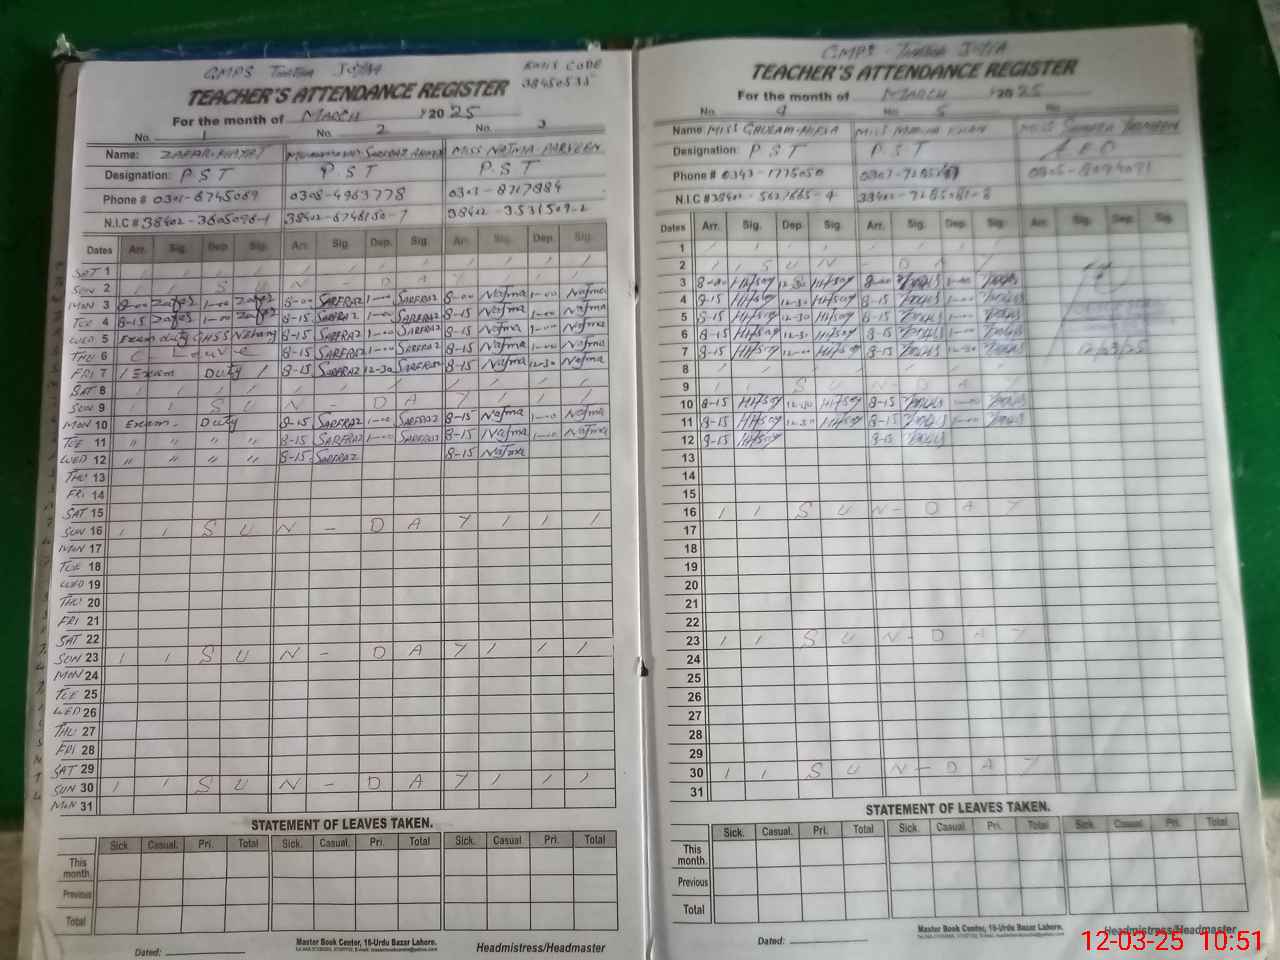 GMPS Thatha Jotia
EMIS CODE
38450535
TEACHER'S ATTENDANCE REGISTER
For the month of MARCH 2025
No. 1 No. 2 No. 3
Name: ZAFAR HAYAT MUHAMMAD SARFRAZ MISS NAJMA PARVEEN
Designation: P S T P S T P S T
Phone # 0301-6745069 0308-4963778
N.I.C # 38402-3605096-1 38402-6746150-7 38402-3531509-2
Dates Arr. Sig. Dep. Sig. Arr. Sig. Dep. Sig. Arr. Sig. Dep. Sig.
SAT 1
SUN 2 S U N - D A Y
MON 3 8-00 Zafar 1-00 Zafar 8-00 SARFRAZ 1-00 SARFRAZ 8-00 Najma 1-00 Najma
TUE 4 8-15 Zafar 1-00 Zafar 8-15 SARFRAZ 1-00 SARFRAZ 8-15 Najma 1-00 Najma
WED 5 Exam duty GHSS 8-15 SARFRAZ 1-00 SARFRAZ 8-15 Najma 1-00 Najma
THU 6 8-15 SARFRAZ 1-00 SARFRAZ 8-15 Najma 1-00 Najma
FRI 7 Exam Duty 8-15 SARFRAZ 12-30 SARFRAZ 8-15 Najma 12-30 Najma
SAT 8
SUN 9 S U N - D A Y
MON 10 Exam. Duty 8-15 SARFRAZ 1-00 SARFRAZ 8-15 Najma 1-00 Najma
TUE 11 " " " " 8-15 SARFRAZ 1-00 SARFRAZ 8-15 Najma 1-00 Najma
WED 12 " " " " 8-15 SARFRAZ 8-15 Najma
THU 13
FRI 14
SAT 15
SUN 16 S U N - D A Y
MON 17
TUE 18
WED 19
THU 20
FRI 21
SAT 22
SUN 23 S U N - D A Y
MON 24
TUE 25
WED 26
THU 27
FRI 28
SAT 29
SUN 30 S U N - D A Y
MON 31
STATEMENT OF LEAVES TAKEN.
Sick. Casual. Pri. Total Sick. Casual. Pri. Total Sick. Casual. Pri. Total
This month.
Previous
Total
Master Book Center, 16-Urdu Bazar Lahore.
Dated: Headmistress/Headmaster
GMPS - Thatha Jotia
TEACHER'S ATTENDANCE REGISTER
For the month of MARCH 2025
No. 4 No. 5 No.
Name MISS MISS KHAN MISS
Designation: P S T P S T A E O
Phone # 0343-1775050
N.I.C # 38402-
Dates Arr. Sig. Dep. Sig. Arr. Sig. Dep. Sig. Arr. Sig. Dep. Sig.
1
2 S U N - D A Y
3 8-00 8-00 1-00
4 8-15 12-30 8-15 1-00
5 8-15 12-30 8-15 1-00
6 8-15 12-30 8-15 1-00
7 8-15 12-00 8-15 12-30 12/03/25
8
9 S U N - D A Y
10 8-15 12-30 8-15 1-00
11 8-15 12-30 8-15 1-00
12 8-15 8-15
13
14
15
16 S U N - D A Y
17
18
19
20
21
22
23 S U N - D A Y
24
25
26
27
28
29
30 S U N - D A Y
31
STATEMENT OF LEAVES TAKEN.
Sick. Casual. Pri. Total Sick. Casual. Pri. Total Sick. Casual. Pri. Total
This month.
Previous
Total
Master Book Center, 16-Urdu Bazar Lahore.
Dated: Headmistress/Headmaster
12-03-25 10:51